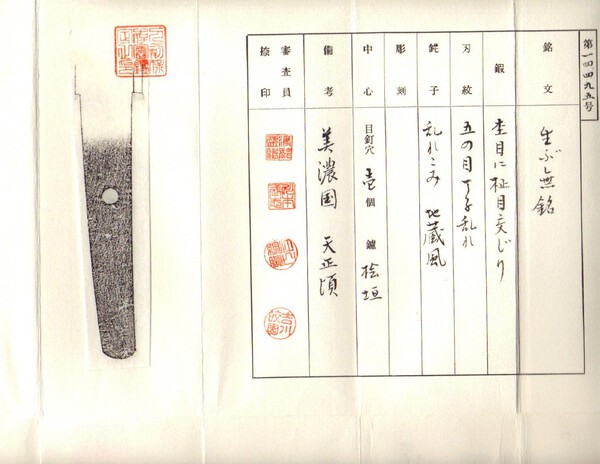 第一四、四九五号
銘文 生ぶ無銘
鍛 杢目に柾目交じり
刃紋 五の目丁子乱れ
鋩子 乱れこみ 地蔵風
彫刻
中心 目釘穴 壱個 鑢 桧垣
備考 美濃国 天正頃
審査員捺印